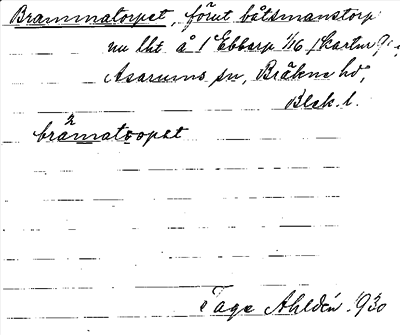 Brammatorpet, förut båtsmanstorp
nu lht å 1 Ebbarp 1/16 (kartur
Asarums sn, Bräkne hd,
Blek. l.
bràmatorpat
Tage Ahldén 1930